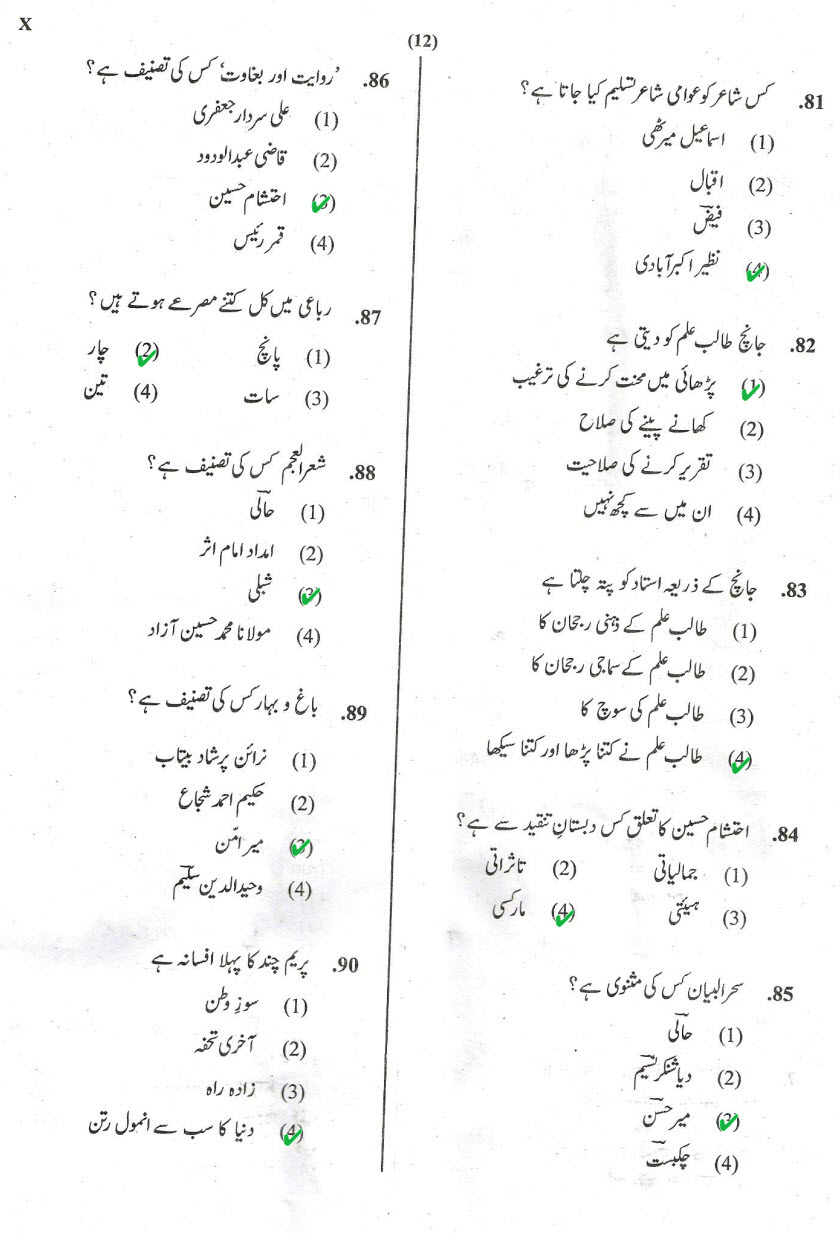 X
(12)
81. کس شاعر کو عوامی شاعر تسلیم کیا جاتا ہے؟
(1) اسماعیل میرٹھی
(2) اقبال
(3) فیضؔ
(4) نظیر اکبرآبادی
82. جانچ طالب علم کو دیتی ہے
(1) پڑھائی میں محنت کرنے کی ترغیب
(2) کھانے پینے کی صلاح
(3) تقریر کرنے کی صلاحیت
(4) ان میں سے کچھ نہیں
83. جانچ کے ذریعہ استاد کو پتہ چلتا ہے
(1) طالب علم کے ذہنی رجحان کا
(2) طالب علم کے سماجی رجحان کا
(3) طالب علم کی سوچ کا
(4) طالب علم نے کتنا پڑھا اور کتنا سیکھا
84. احتشام حسین کا تعلق کس دبستانِ تنقید سے ہے؟
(1) جمالیاتی (2) تاثراتی
(3) ہیئتی (4) مارکسی
85. سحرالبیان کس کی مثنوی ہے؟
(1) حالیؔ
(2) دیاشنکر نسیمؔ
(3) میر حسنؔ
(4) چکبستؔ
86. 'روایت اور بغاوت' کس کی تصنیف ہے؟
(1) علی سردار جعفری
(2) قاضی عبدالودود
(3) احتشام حسین
(4) قمر رئیس
87. رباعی میں کل کتنے مصرعے ہوتے ہیں؟
(1) پانچ (2) چار
(3) سات (4) تین
88. شعرالعجم کس کی تصنیف ہے؟
(1) حالیؔ
(2) امداد امام اثر
(3) شبلی
(4) مولانا محمد حسین آزاد
89. باغ و بہار کس کی تصنیف ہے؟
(1) نرائن پرشاد بیتاب
(2) حکیم احمد شجاع
(3) میر امّن
(4) وحیدالدین سلیمؔ
90. پریم چند کا پہلا افسانہ ہے
(1) سوزِ وطن
(2) آخری تحفہ
(3) زادہ راہ
(4) دنیا کا سب سے انمول رتن